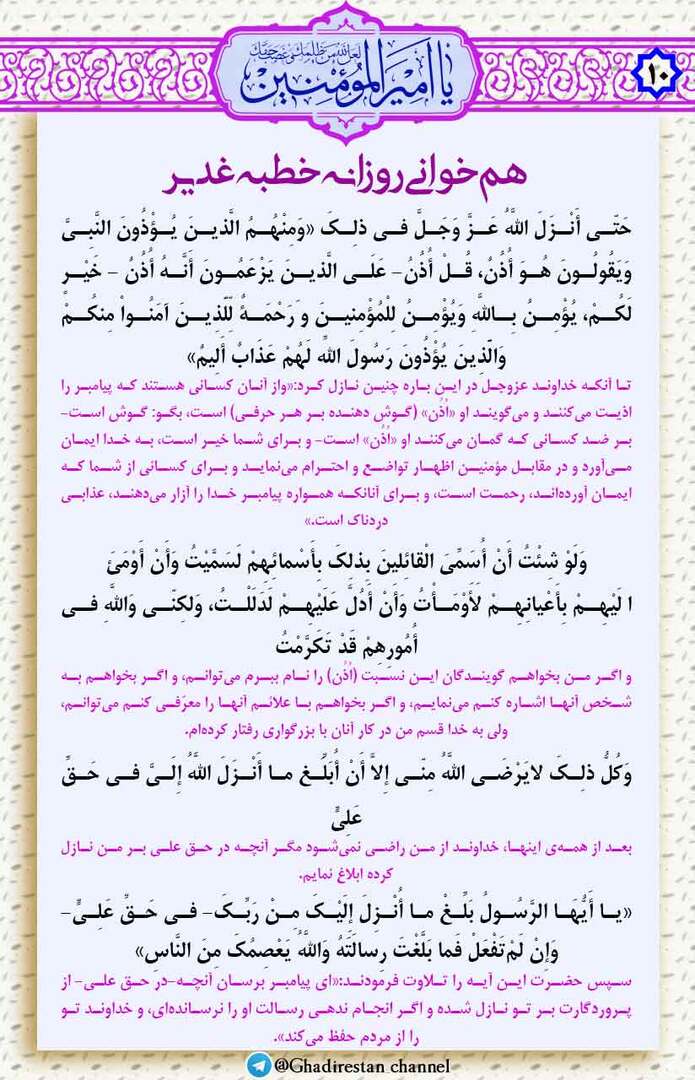 ۱۰
لعن الله من ظلمک و غصب حقک
یا امیرالمؤمنین
هم خوانی روزانه خطبه غدیر
حَتّی أَنْزَلَ اللَّهُ عَزَّ وَجَلَّ فی ذلِکَ «وَمِنْهُمُ الَّذینَ یُؤْذُونَ النَّبِیَّ
وَیَقُولُونَ هُوَ أُذُنٌ، قُلْ أُذُنُ- عَلَی الَّذینَ یَزْعَمُونَ أَنَّهُ أُذُنٌ - خَیْرٍ
لَکُمْ، یُؤْمِنُ بِاللَّهِ وَیُؤْمِنُ لِلْمُؤْمِنینَ وَ رَحْمَهٌ لِلَّذینَ آمَنُواْ مِنکُمْ
وَالَّذِینَ یُؤذُونَ رَسُولَ اللهِ لَهُمْ عَذَابٌ أَلیمٌ»
تا آنکه خداوند عزوجل در این باره چنین نازل کرد:«واز آنان کسانی هستند که پیامبر را
اذیت می‌کنند و می‌گویند او «اُذُن» (گوش دهنده بر هر حرفی) است، بگو: گوش است-
بر ضد کسانی که گمان می‌کنند او «اُذُن» است- و برای شما خیر است، به خدا ایمان
می‌آورد و در مقابل مؤمنین اظهار تواضع و احترام می‌نماید و برای کسانی از شما که
ایمان آورده‌اند، رحمت است، و برای آنانکه همواره پیامبر خدا را آزار می‌دهند، عذابی
دردناک است.»
وَلَوْ شِئْتُ أَنْ أُسَمِّیَ الْقائِلینَ بِذلِکَ بِأَسْمائِهِمْ لَسَمَّیْتُ وَأَنْ أَوْمَئَ
ا لَیْهِمْ بِأَعْیانِهِمْ لَأَوْمَأْتُ وَأَنْ أَدُلَّ عَلَیْهِمْ لَدَلَلْتُ، وَلکِنّی وَاللَّهِ فی
أُمُورِهِمْ قَدْ تَکَرَّمْتُ
و اگر من بخواهم گویندگان این نسبت (اُذُن) را نام ببرم می‌توانم، و اگر بخواهم به
شخص آنها اشاره کنم می‌نمایم، و اگر بخواهم با علائم آنها را معرّفی کنم می‌توانم،
ولی به خدا قسم من در کار آنان با بزرگواری رفتار کرده‌ام.
وَکُلُّ ذلِکَ لایَرْضَی اللَّهُ مِنّی إِلاَّ أَنْ أُبَلِّغَ ما أَنْزَلَ اللَّهُ إِلَیَّ فی حَقِّ
عَلِیٍّ
بعد از همه‌ی اینها، خداوند از من راضی نمی‌شود مگر آنچه در حق علی بر من نازل
کرده ابلاغ نمایم.
«یا أَیُّهَا الرَّسُولُ بَلِّغْ ما أُنْزِلَ إِلَیْکَ مِنْ رَبِّکَ- فی حَقِّ عَلِیٍّ-
وَإِنْ لَمْ تَفْعَلْ فَما بَلَّغْتَ رِسالَتَهُ وَاللَّهُ یَعْصِمُکَ مِنَ النَّاسِ»
سپس حضرت این آیه را تلاوت فرمودند:«ای پیامبر برسان آنچه-در حق علی- از
پروردگارت بر تو نازل شده و اگر انجام ندهی رسالت او را نرسانده‌ای، و خداوند تو
را از مردم حفظ می‌کند».
@Ghadirestan channel